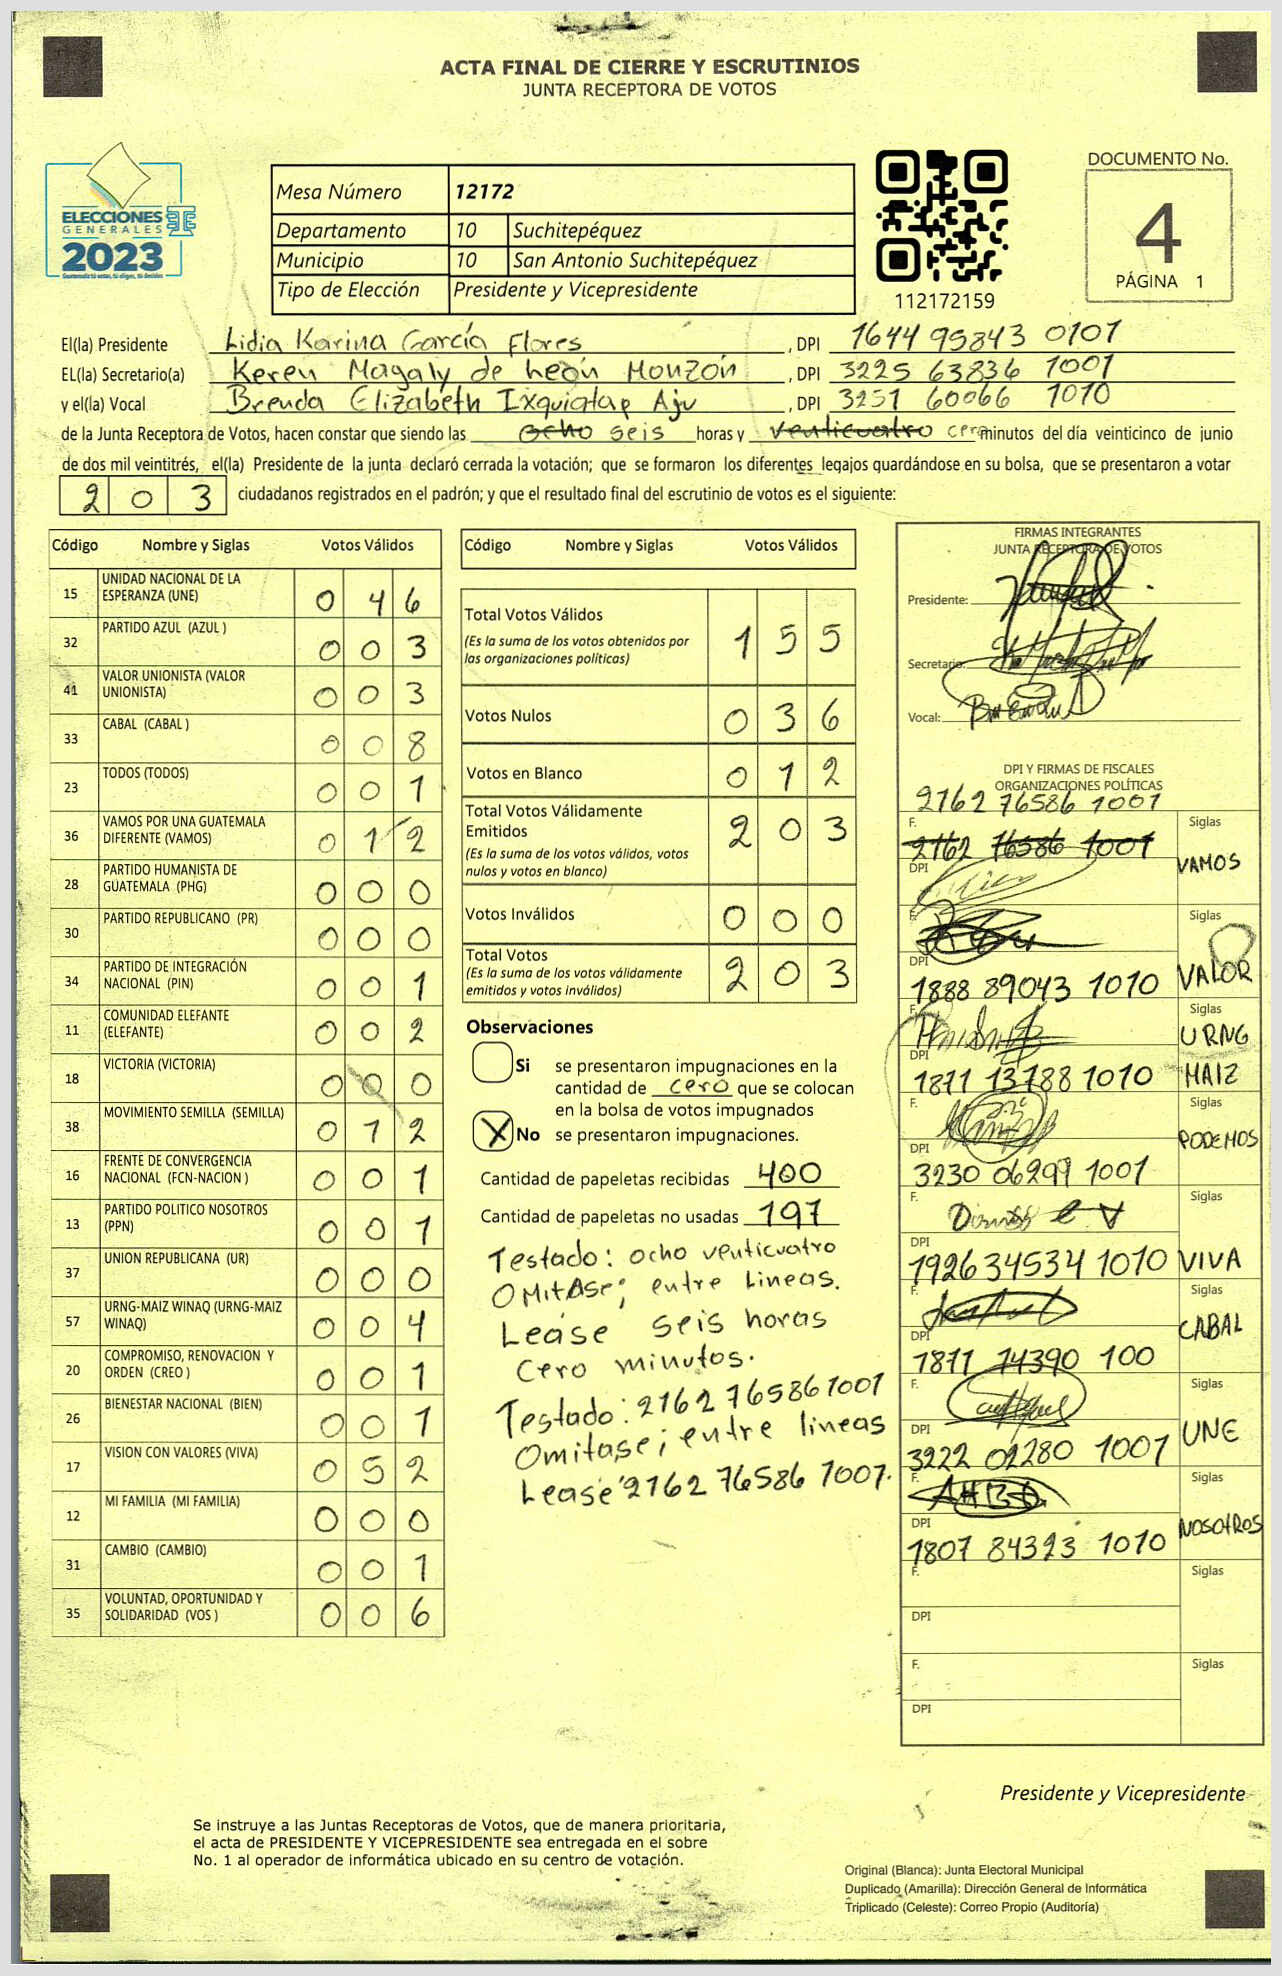 ACTA FINAL DE CIERRE Y ESCRUTINIOS
JUNTA RECEPTORA DE VOTOS
ELECCIONES
GENERALES
2023
Mesa Número 12172
Departamento 10 Suchitepéquez
Municipio 10 San Antonio Suchitepéquez
Tipo de Elección Presidente y Vicepresidente
112172159
DOCUMENTO No.
4
PÁGINA 1
El(la) Presidente Lidia Karina García Flores , DPI 1644 95843 0101
EL(la) Secretario(a) Keren Magaly de León Monzón , DPI 3225 63836 1001
y el(la) Vocal Brenda Elizabeth Ixquiatap Aju , DPI 3251 60066 1010
de la Junta Receptora de Votos, hacen constar que siendo las ocho seis horas y venticuatro cero minutos del día veinticinco de junio
de dos mil veintitrés, el(la) Presidente de la junta declaró cerrada la votación; que se formaron los diferentes legajos guardándose en su bolsa, que se presentaron a votar
203 ciudadanos registrados en el padrón; y que el resultado final del escrutinio de votos es el siguiente:
Código Nombre y Siglas Votos Válidos
15 UNIDAD NACIONAL DE LA ESPERANZA (UNE) 0 4 6
32 PARTIDO AZUL (AZUL ) 0 0 3
41 VALOR UNIONISTA (VALOR UNIONISTA) 0 0 3
33 CABAL (CABAL ) 0 0 8
23 TODOS (TODOS) 0 0 1
36 VAMOS POR UNA GUATEMALA DIFERENTE (VAMOS) 0 1 2
28 PARTIDO HUMANISTA DE GUATEMALA (PHG) 0 0 0
30 PARTIDO REPUBLICANO (PR) 0 0 0
34 PARTIDO DE INTEGRACIÓN NACIONAL (PIN) 0 0 1
11 COMUNIDAD ELEFANTE (ELEFANTE) 0 0 2
18 VICTORIA (VICTORIA) 0 0 0
38 MOVIMIENTO SEMILLA (SEMILLA) 0 1 2
16 FRENTE DE CONVERGENCIA NACIONAL (FCN-NACION ) 0 0 1
13 PARTIDO POLITICO NOSOTROS (PPN) 0 0 1
37 UNION REPUBLICANA (UR) 0 0 0
57 URNG-MAIZ WINAQ (URNG-MAIZ WINAQ) 0 0 4
20 COMPROMISO, RENOVACION Y ORDEN (CREO ) 0 0 1
26 BIENESTAR NACIONAL (BIEN) 0 0 1
17 VISION CON VALORES (VIVA) 0 5 2
12 MI FAMILIA (MI FAMILIA) 0 0 0
31 CAMBIO (CAMBIO) 0 0 1
35 VOLUNTAD, OPORTUNIDAD Y SOLIDARIDAD (VOS ) 0 0 6
Código Nombre y Siglas Votos Válidos
Total Votos Válidos 1 5 5
(Es la suma de los votos obtenidos por
las organizaciones políticas)
Votos Nulos 0 3 6
Votos en Blanco 0 1 2
Total Votos Válidamente
Emitidos 2 0 3
(Es la suma de los votos válidos, votos
nulos y votos en blanco)
Votos Inválidos 0 0 0
Total Votos 2 0 3
(Es la suma de los votos válidamente
emitidos y votos inválidos)
Observaciones
Si se presentaron impugnaciones en la
cantidad de cero que se colocan
en la bolsa de votos impugnados
X No se presentaron impugnaciones.
Cantidad de papeletas recibidas 400
Cantidad de papeletas no usadas 197
Testado: ocho venticuatro
Omitase; entre lineas.
Lease seis horas
Cero minutos.
Testado: 2162 76586 1001
Omitase; entre lineas
Lease 2162 76586 1001.
FIRMAS INTEGRANTES
JUNTA RECEPTORA DE VOTOS
Presidente:
Secretario:
Vocal:
DPI Y FIRMAS DE FISCALES
ORGANIZACIONES POLÍTICAS
2162 76586 1001
F. Siglas
2162 76586 1001
DPI VAMOS
F. Siglas
DPI 1888 89043 1010 VALOR
F. Siglas
URNG
DPI 1871 13788 1010 MAIZ
F. Siglas
DPI 3230 06299 1001 PODEMOS
F. Siglas
DPI 1926 34534 1010 VIVA
F. Siglas
DPI 1871 14390 100 CABAL
F. Siglas
DPI 3222 02280 1001 UNE
F. Siglas
DPI 1807 84323 1010 NOSOTROS
F. Siglas
DPI
F. Siglas
DPI
Presidente y Vicepresidente
Se instruye a las Juntas Receptoras de Votos, que de manera prioritaria,
el acta de PRESIDENTE Y VICEPRESIDENTE sea entregada en el sobre
No. 1 al operador de informática ubicado en su centro de votación.
Original (Blanca): Junta Electoral Municipal
Duplicado (Amarilla): Dirección General de Informática
Triplicado (Celeste): Correo Propio (Auditoría)